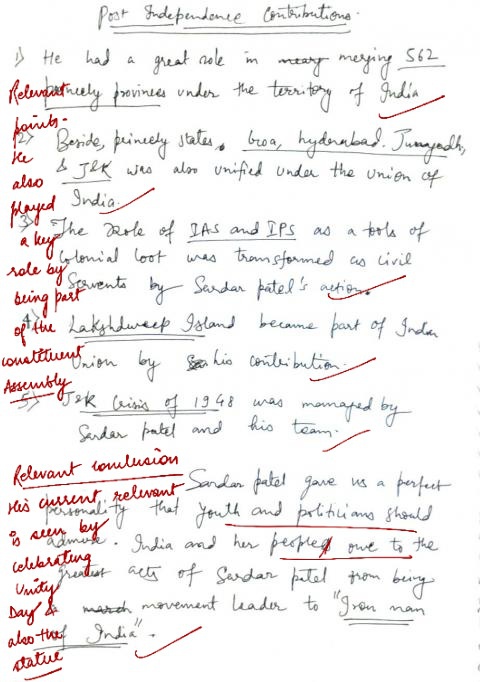 Post Independence Contributions.
1) He had a great role in merging 562
princely provinces under the territory of India
2) Beside, princely states, Goa, hyderabad, Junagadh,
& J&K was also unified under the union of
India.
3) The Role of IAS and IPS as a tools of
colonial loot was transformed as civil
Servants by Sardar patel's action.
4) Lakshdweep Island became part of Indian
Union by his contribution.
5) J&K Crisis of 1948 was managed by
Sardar patel and his team.
Relevant
points-
He
also
played
a key
role by
being part
of the
constituent
Assembly
Sardar patel gave us a perfect
personality that youth and politicians should
admire. India and her people owe to the
greatest acts of Sardar patel from being
movement leader to "Iron man
of India".
Relevant conclusion
His current relevant
is seen by
celebrating
Unity
Day &
also the
statue